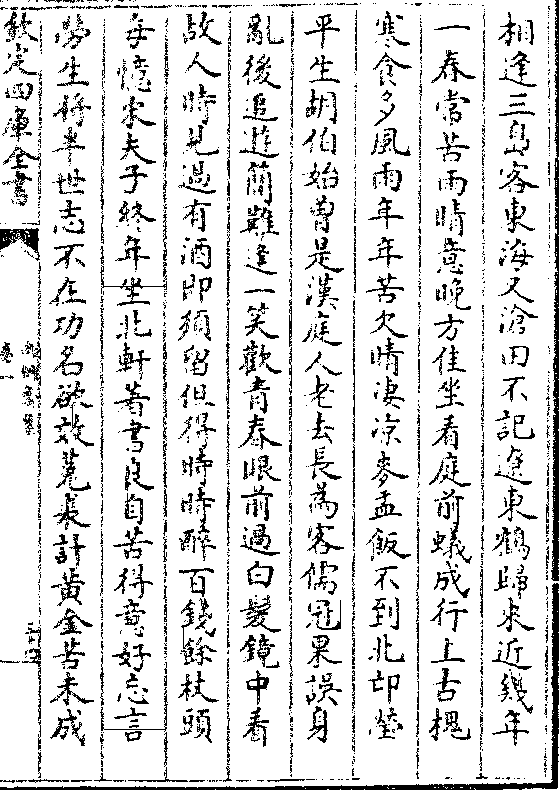 相逢三島客東海又滄田不記遼東鶴歸來近幾年
一春常苦雨晴意晚方佳坐看庭前蟻成行上古槐
寒食多風雨年年苦欠晴凄凉麥盂飯不到北邙塋
平生胡伯始曽是漢庭人老去長為客儒冠果誤身
亂後追遊簡難逢一笑歡青春眼前過白髮鏡中看
故人時見過有酒即須留但得時時醉百錢餘杖頭
每憶宋夫子終年坐北軒著書良自苦得意好忘言
勞生将半世志不在功名欲效菟裘計黄金苦未成
欽定四庫全書
卷一